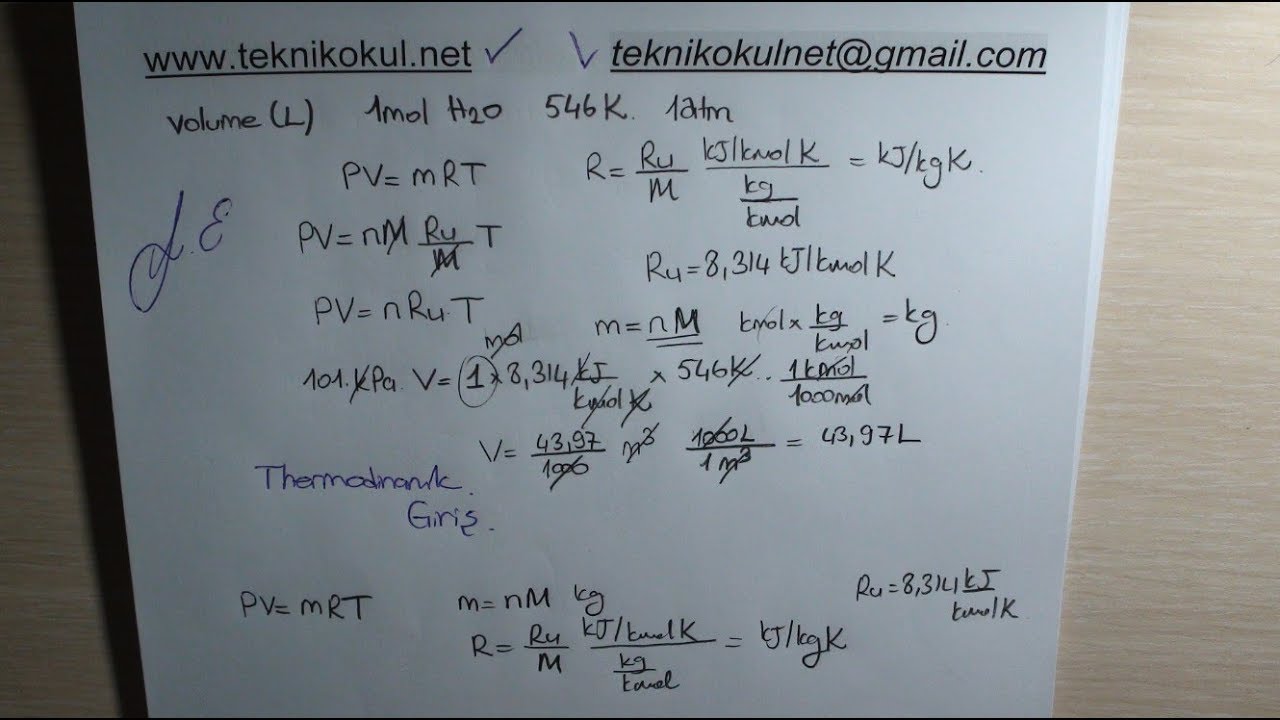 www.teknikokul.net ✓ \/ teknikokulnet@gmail.com
Volume (L) 1mol H2O 546K. 1atm
PV = mRT R = Ru/M kJ/kmolK / kg/kmol = kJ/kgK.
PV = nM Ru/M T
Ru = 8,314 kJ/kmolK
PV = nRuT
m = nM kmol x kg/kmol = kg
mol
101.KPa. V = 1 x 8,314 kJ/kmolK x 546K.. 1kmol/1000mol
V = 43,97/1000 m³ 1000L/1m³ = 43,97L
Thermodinamik.
Giriş.
PV = mRT m = nM kg Ru = 8,314 kJ/kmolK.
R = Ru/M kJ/kmolK / kg/kmol = kJ/kgK